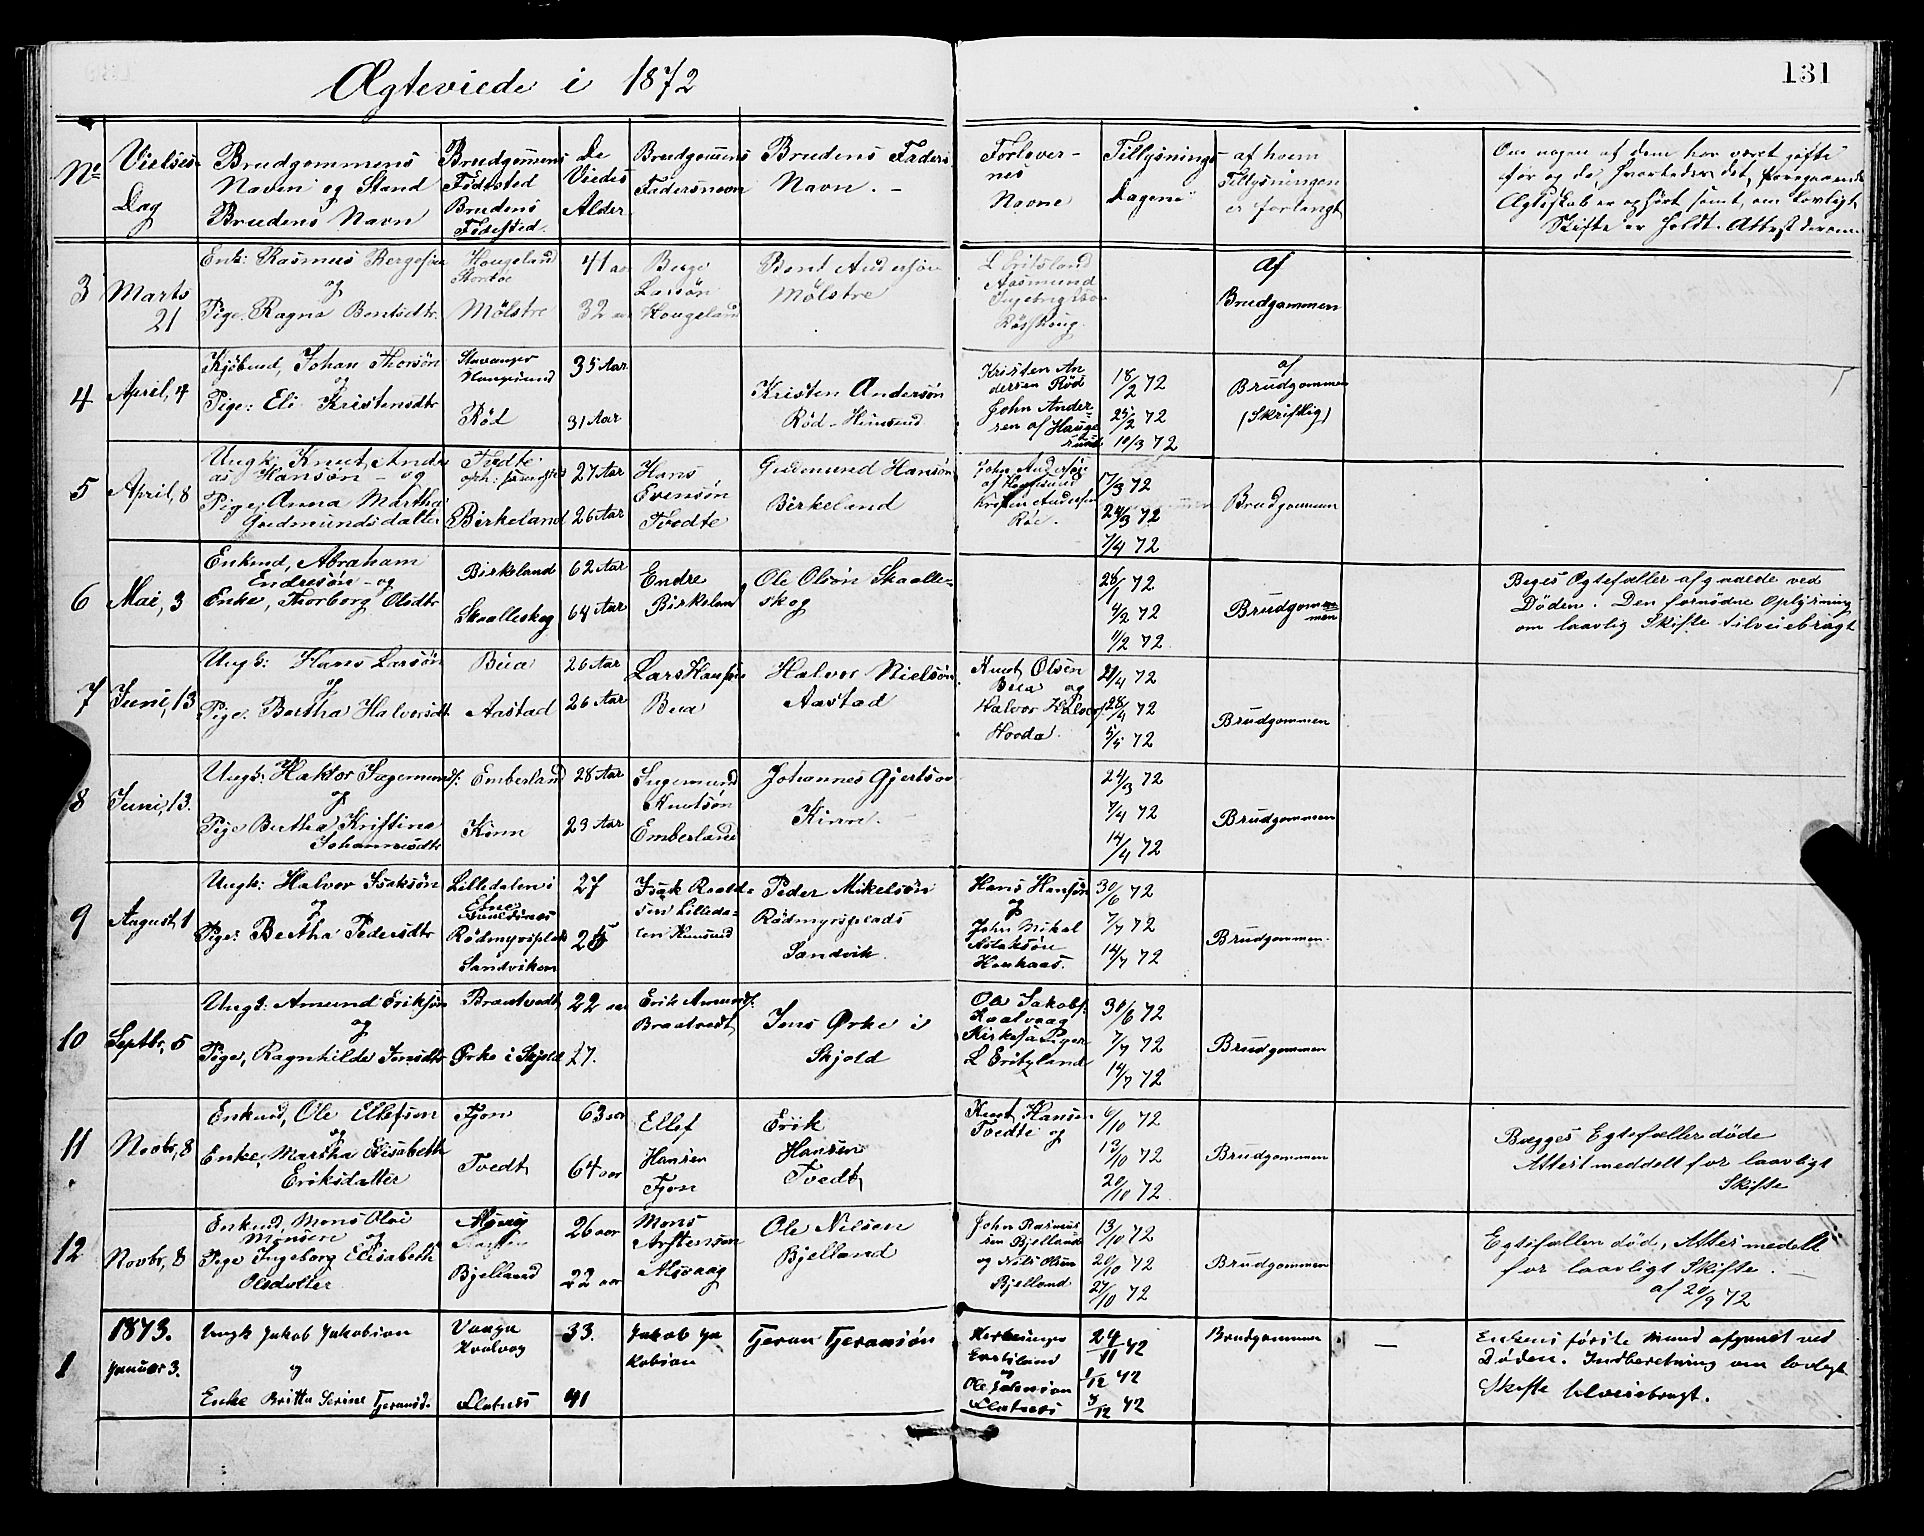 Ægteviede i 1872
131
No
Vielses Dag
Brudgommens Navn og Stand Brudens Navn
Brudgomens Fødested Brudens Fødested.
De Viedes Alder
Brudgomens Fadersnavn
Brudens Faders Navn. –
Forlover-nes Navne
Tillysnings Dagene
af hvem Tillysningen er forlangt
Om nogen af dem har været gifte
før og da, hvorledes det foregaaende
Ægteskab er ophört samt, om lovligt
Skifte er holdt. Attest derom
3 Marts 21
Enk: Rasmus Bergesøn
og
Pige. Ragna Bentsdtr.
Hougeland
Mölstre
41 aar
32 aar
Berge Larsön Hougeland
Bent Andersön Mölstre
Aasmund
Af Brudgommen
4 April, 4
Kjöbmd, Johan Thorsön
og
Pige: Eli Kristensdtr
Stavanger Haugesund
Röd
35 Aar
31 Aar
Kristen Andersön
Röd
Kristen Andersen Röd
John Andersen af Haugesund
18/2 72
25/2 72
10/3 72
af Brudgommen (Skriftlig)
5 April, 8
Ungk: Knut Andreas Hansön – og
Pige, Anna Martha Gudmundsdatter
Tvedte
Birkeland
27 Aar
26 Aar
Hans Evensön Tvedte
Gudmund Hansön
Birkeland
John Andersön af Haugesund
Kristen Andersen
17/3 72
24/3 72
7/4 72
Brudgommen
6 Mai, 3
Enkmd, Abraham Endresön – og
Enke, Thorborg Olsdtr
Birkeland
Skaalleskog
62 Aar
64 Aar
Endre Birkeland
Ole Olsön Skaalle-skog
28/1 72
4/2 72
11/2 72
Brudgommen
Beges Ægtefæller afgaaede ved
Döden. Den fornödne Oplysning
om laavlig Skifte tilveiebragt
7 Juni, 13
Ungk: Hans Larsön
og
Pige. Bertha Halvorsdt.
Bua
Aastad
26 Aar
26 Aar
Lars Hansen Bua
Halvor Nielsön
Aastad
Knut Olsen Bua og
Halvor Halvors. Hovda
21/4 72
28/4 72
5/5 72
Brudgommen
8 Juni, 13.
Ungk: Haktor Ingemunds.
og
Pige Bertha Kristina Johannesdtr
Emberland
Kinn
28 Aar
23 Aar
Ingemund Knutsön Emberland
Johannes Gjertsen
Kinn.
24/3 72
7/4 72
14/4 72
Brudgommen
9 August, 1
Ungk: Halvor Isaksön
og
Pige: Bertha Pedersdtr
Lilledalen i Etne
Rödmyrsplads Sandviken
27
25
Isak
Peder Mikelsön
Rödmyrsplads
Sandvik
Hans Hansön
og
John Mikal
30/6 72
7/7 72
14/7 72
Brudgommen.
10 Septbr, 5
Ungk: Amund Eriksön
og
Pige, Ragnhilde Jensdtr
Braatvedt
Ørke i Skjold
22 aar
27.
Erik Amunds. Braatvedt
Jens Ørke i
Skjold
Ole Jakobs. Kvalvaag
Kirkesanger
30/6 72
7/7 72
14/7 72
Brudgommen
11 Novbr, 8
Enkmd, Ole Ellefsen
og
Enke, Martha Elisabeth Eriksdatter
Fjon
Tvedt
63 aar
64 aar
Ellef Hansen Fjon
Erik Hansen Tvedt
Knut Hansen Tvedte og
6/10 72
13/10 72
20/10 72
Brudgommen
Bægges Egtefæller döde
Attest meddelt for laavligt
Skifte
12 Novbr, 8
Enkmd, Mons Olai Monsen og
Pige Ingeborg Elisabeth Olsdatter
Bjelland
26 aar
22 aar
Mons
Ole Nilsen
Bjelland
John Rasmussen Bjelland
og Nils Olsen Bjelland
13/10 72
20/10 72
27/10 72
Brudgommen
Egtefællen död, Attest medelt
for laavligt Skifte.
af 20/9 72
1873.
1 Januar 3.
Ungk Jakob Jakobsen
og
Enke Britta Serine Tjeransd.
Kvalvog
Flatnes
33.
41
Jakob Jakobsen
Tjeran Tjeransön
Kirkesanger
og
Flatnes
24/11 72
1/12 72
8/12 72
Brudgommen
–
Enkens förste Mand afgaaet ved
Döden. Indberetning om lovligt
Skifte tilveiebragt.